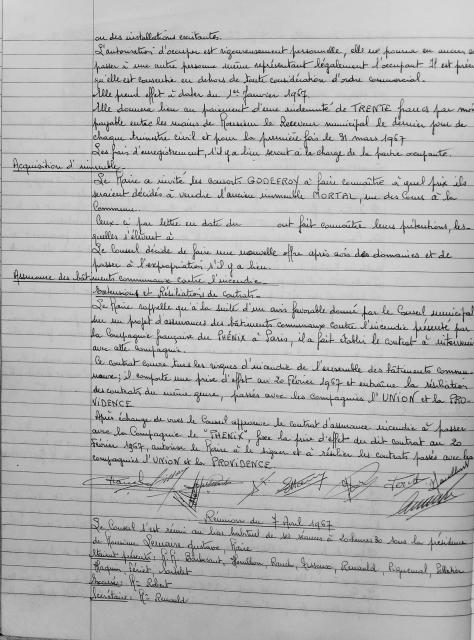 ou des installations existantes.
L'autorisation d'occuper est rigoureusement personnelle, elle ne pourra en aucun cas
passer à une autre personne même représentant légalement l'occupant. Il est précisé
qu'elle est consentie en dehors de toute considération d'ordre commercial.
Elle prend effet à dater du 1er Janvier 1967.
Elle donnera lieu au paiement d'une indemnité de TRENTE francs par mois
payable entre les mains de Monsieur le Receveur municipal le dernier jour de
chaque trimestre civil et pour la première fois le 31 mars 1967
Les frais d'enregistrement, s'il y a lieu seront à la charge de la partie occupante.
Acquisition d'immeuble.
Le Maire a invité les consorts GODEFROY à faire connaître à quel prix ils
seraient décidés à vendre l'ancien immeuble MORTAL, rue des Cours à la
Commune.
Ceux-ci par lettre en date du ont fait connaître leurs prétentions, les-
quelles s'élèvent à
Le Conseil décide de faire une nouvelle offre après avis des domaines et de
passer à l'expropriation s'il y a lieu.
Assurance des bâtiments communaux contre l'incendie
Extensions et Résiliations de contrats.
Le Maire rappelle qu'à la suite d'un avis favorable donné par le Conseil municipal
sur un projet d'assurances des bâtiments communaux contre l'incendie présenté par
la Compagnie française du PHÉNIX à Paris, il a fait établir le contrat à intervenir
avec cette compagnie.
Ce contrat couvre tous les risques d'incendie de l'ensemble des bâtiments commu-
naux ; il comporte une prise d'effet au 20 Février 1967 et entraîne la résiliation
des contrats du même genre, passés avec les compagnies l'UNION et la PRO-
VIDENCE
Après échange de vues le Conseil approuve le contrat d'assurance incendie à passer
avec la Compagnie le "PHENIX", fixe la prise d'effet du dit contrat au 20
Février 1967, autorise le Maire à le signer et à résilier les contrats passés avec les
compagnies l'UNION et la PROVIDENCE
Réunion du 7 Avril 1967
Le Conseil s'est réuni au lieu habituel de ses séances à 20 heures 30 sous la présidence
de Monsieur Lemaire Gustave, Maire
Etaient présents : M.M.
Secrétaire : Mr Renauld